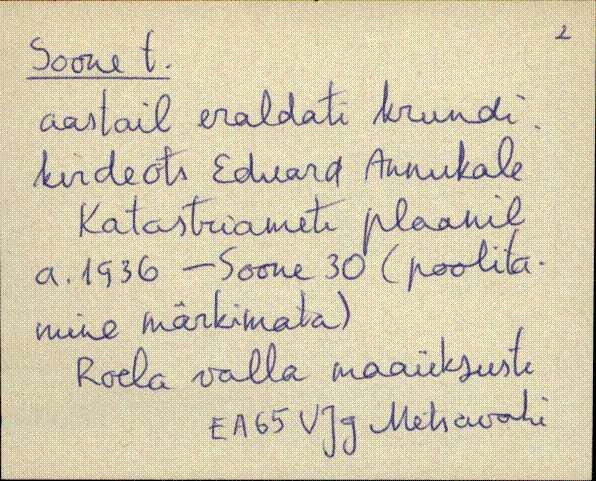 2
Soone t.
aastail eraldati krundi
kirdeots Eduard Annukale
Katastriameti plaanil
a. 1936 – Soone 30 (poolita-
mine märkimata)
Roela valla maaüksuste
EA65 VJg Metsavahi